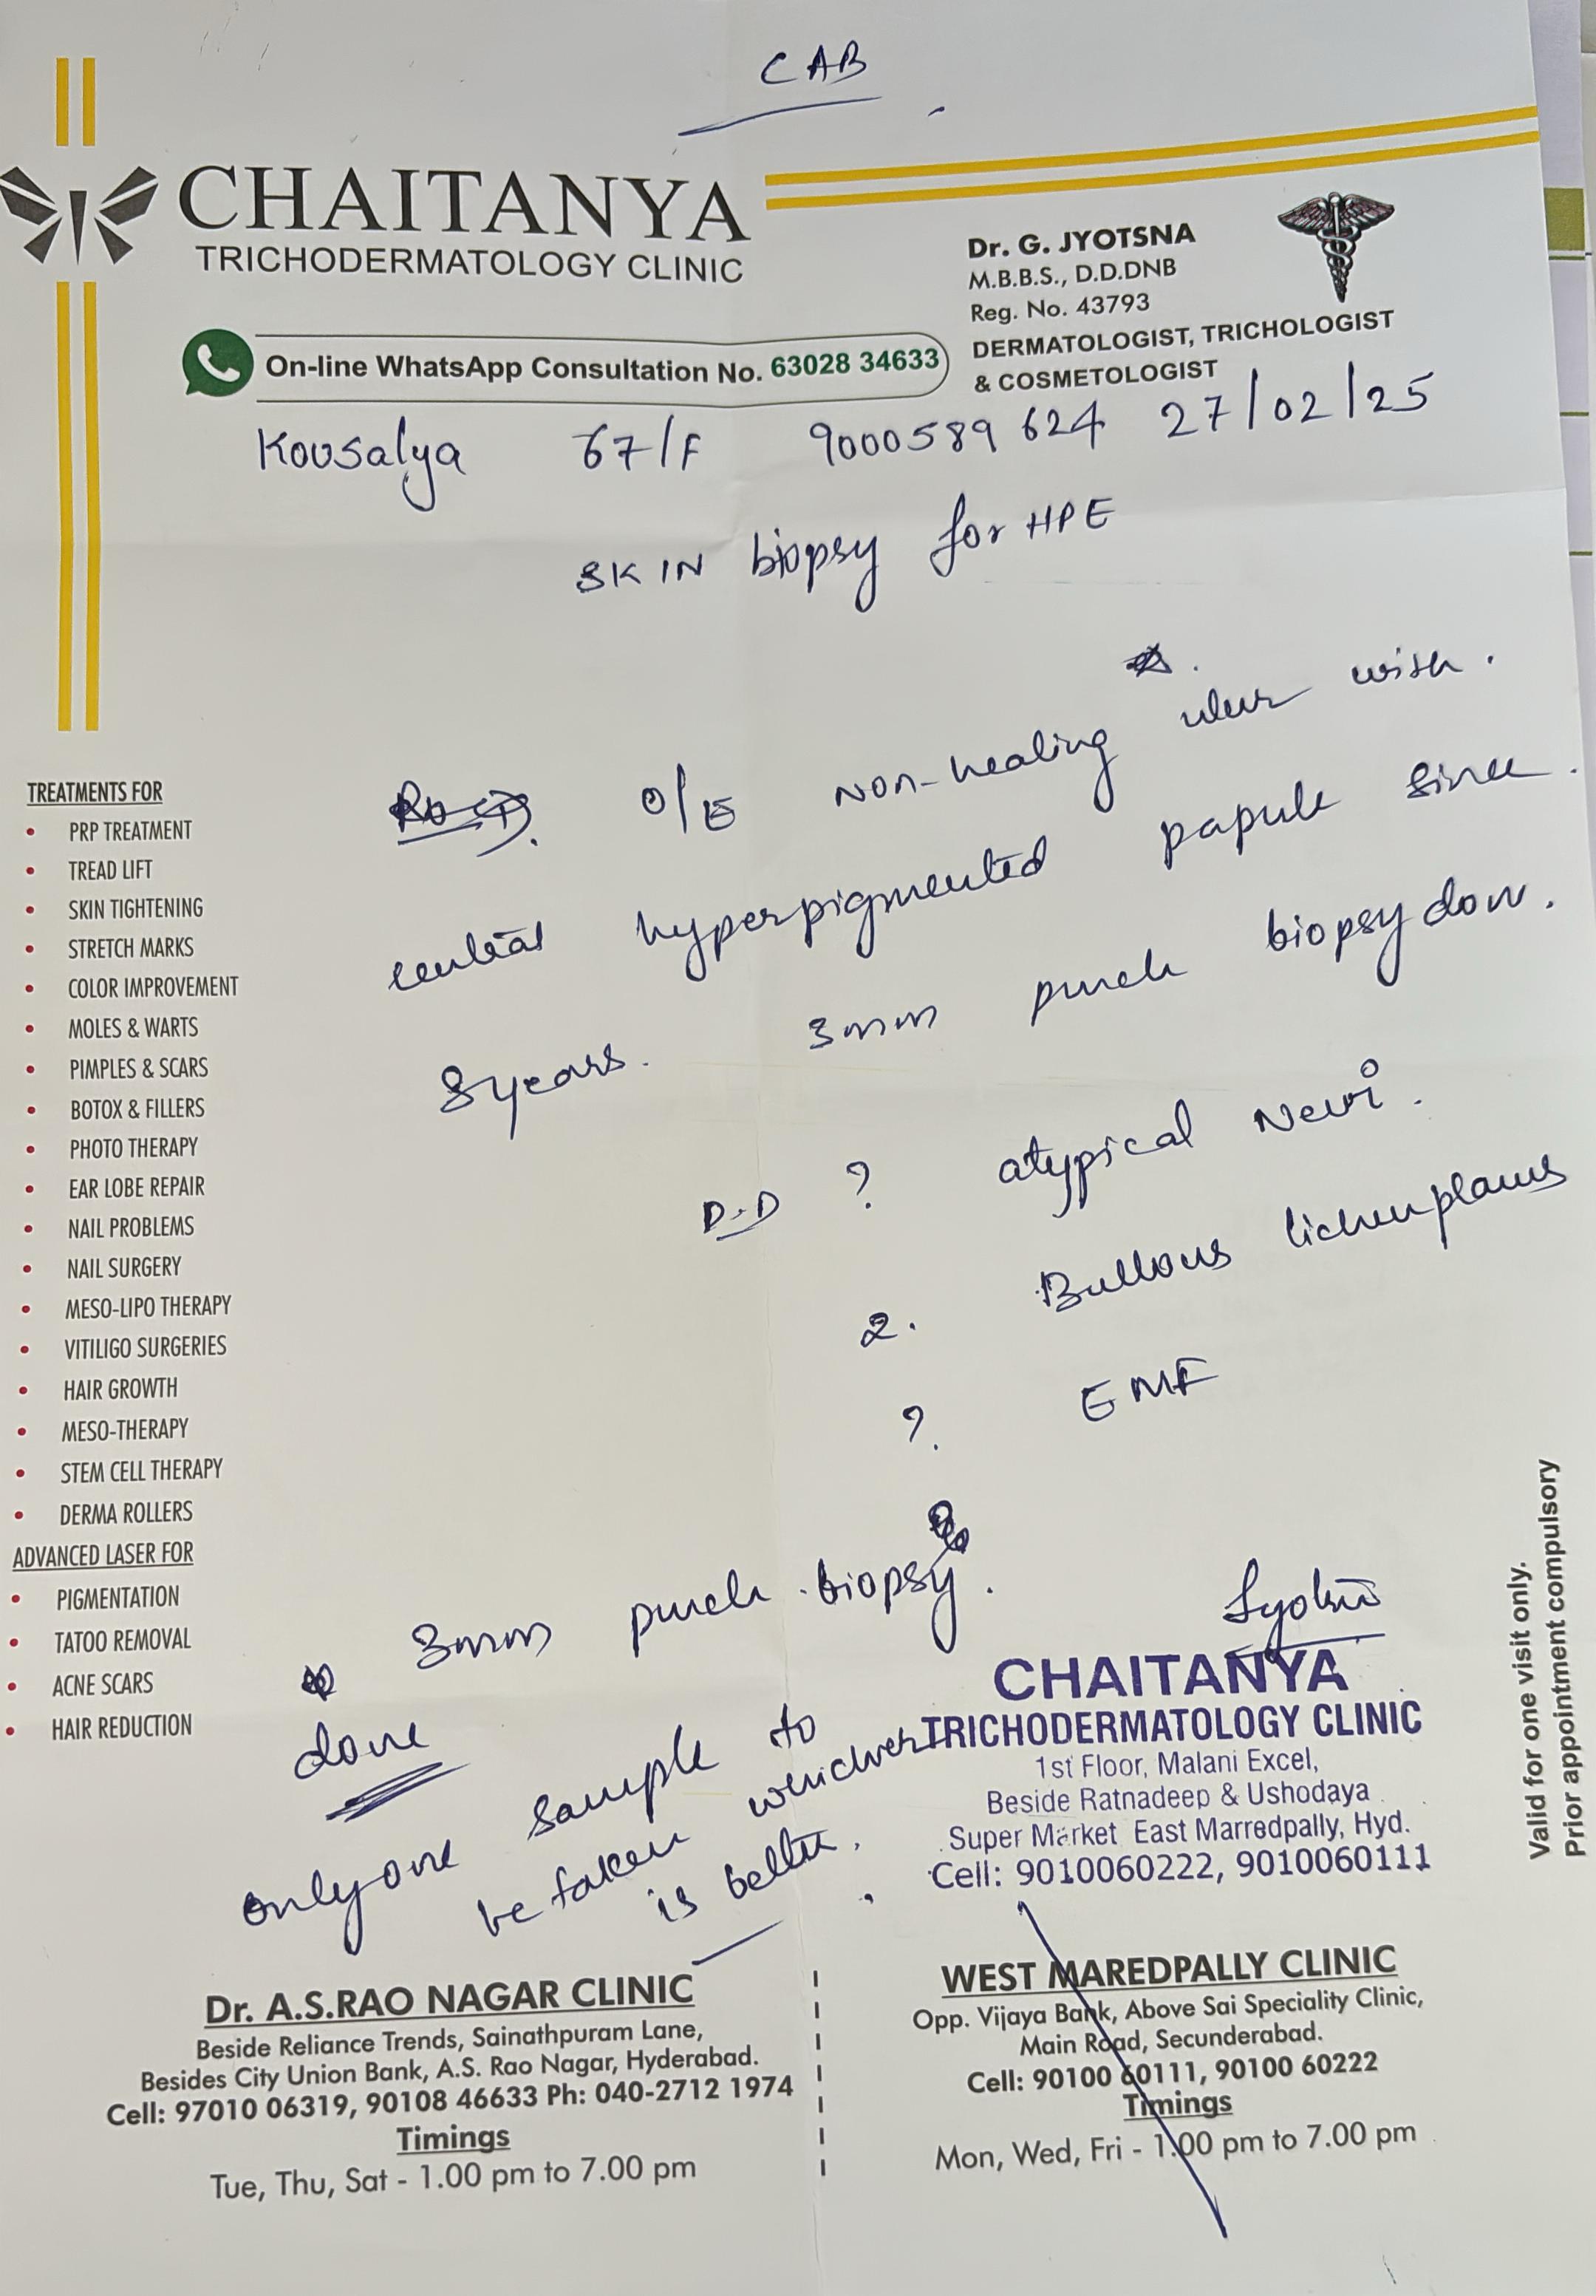 CAB
CHAITANYA
TRICHODERMATOLOGY CLINIC
Dr. G. JYOTSNA
M.B.B.S., D.D.DNB
Reg. No. 43793
DERMATOLOGIST, TRICHOLOGIST
& COSMETOLOGIST
On-line WhatsApp Consultation No. 63028 34633
Kousalya 67/F 9000589624 27/02/25
SKIN biopsy for HPE
O/E non-healing ulcer with
central hyperpigmented papule since
8 years. 3mm punch biopsy done.
D.D ? atypical Nevi.
2. Bullous lichen planus
?. EMF
3mm punch biopsy.
done
only one sample to
be taken whichever
is better.
TREATMENTS FOR
• PRP TREATMENT
• TREAD LIFT
• SKIN TIGHTENING
• STRETCH MARKS
• COLOR IMPROVEMENT
• MOLES & WARTS
• PIMPLES & SCARS
• BOTOX & FILLERS
• PHOTO THERAPY
• EAR LOBE REPAIR
• NAIL PROBLEMS
• NAIL SURGERY
• MESO-LIPO THERAPY
• VITILIGO SURGERIES
• HAIR GROWTH
• MESO-THERAPY
• STEM CELL THERAPY
• DERMA ROLLERS
ADVANCED LASER FOR
• PIGMENTATION
• TATOO REMOVAL
• ACNE SCARS
• HAIR REDUCTION
CHAITANYA
TRICHODERMATOLOGY CLINIC
1st Floor, Malani Excel,
Beside Ratnadeep & Ushodaya
Super Market East Marredpally, Hyd.
Cell: 9010060222, 9010060111
Valid for one visit only.
Prior appointment compulsory
Dr. A.S.RAO NAGAR CLINIC
Beside Reliance Trends, Sainathpuram Lane,
Besides City Union Bank, A.S. Rao Nagar, Hyderabad.
Cell: 97010 06319, 90108 46633 Ph: 040-2712 1974
Timings
Tue, Thu, Sat - 1.00 pm to 7.00 pm
WEST MAREDPALLY CLINIC
Opp. Vijaya Bank, Above Sai Speciality Clinic,
Main Road, Secunderabad.
Cell: 90100 60111, 90100 60222
Timings
Mon, Wed, Fri - 1.00 pm to 7.00 pm